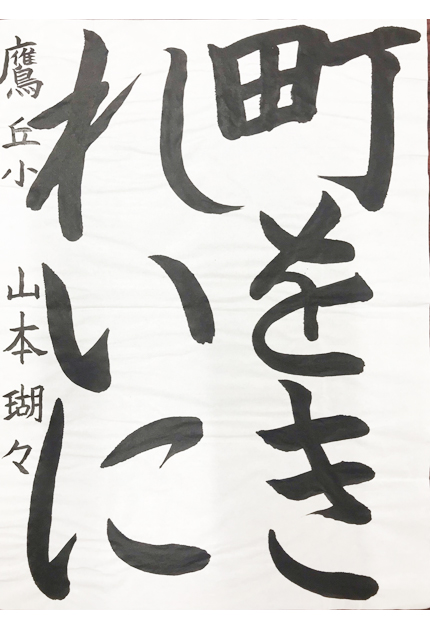 町をき
れいに
鷹丘小 山本瑚々